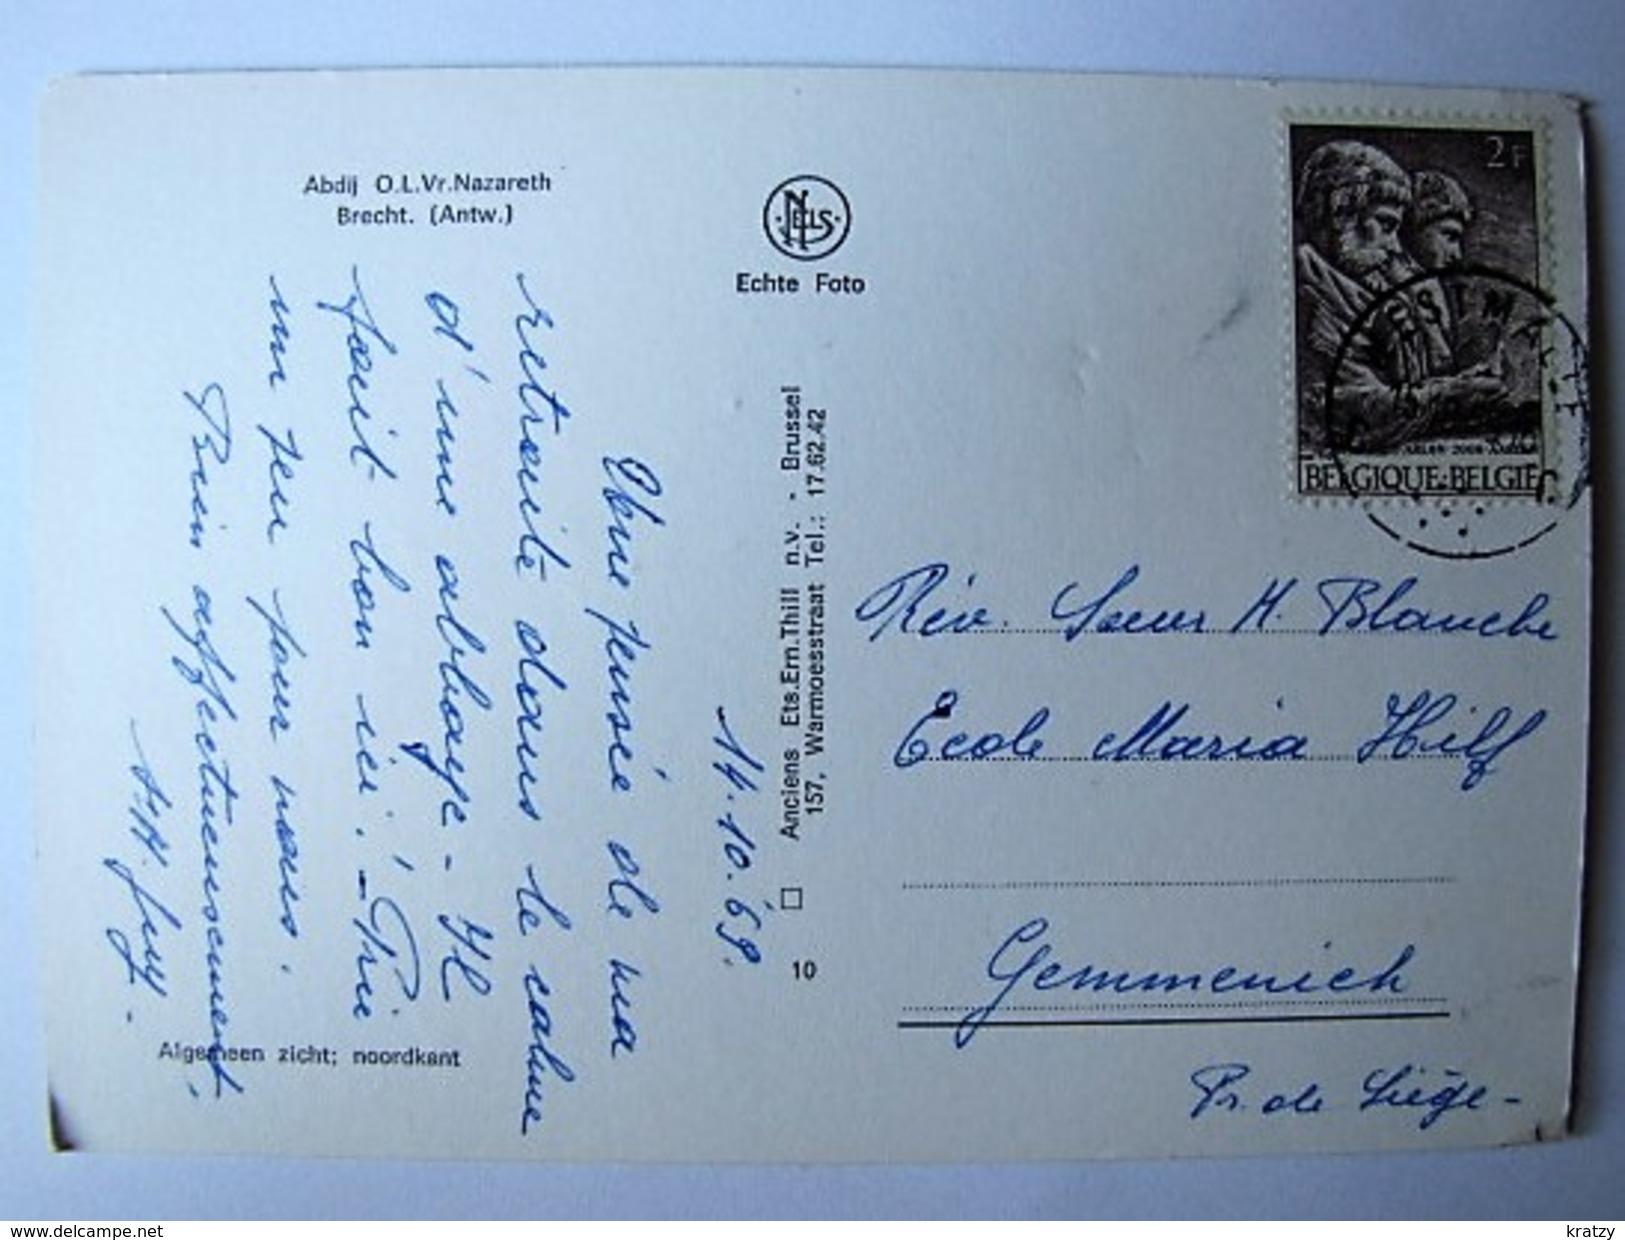 Abdij O.L.Vr.Nazareth
Brecht. (Antw.)
NELS
Echte Foto
2F
BELGIQUE-BELGIË
14.10.69.
Une pensée de ma
retraite dans le calme
d'une abbaye - Il
fait bon ici! - Prie
un peu pour nous.
Bien affectueusement,
Algemeen zicht; noordkant
Anciens Ets.Ern.Thill n.v. - Brussel
157, Warmoesstraat Tel.: 17.62.42
10
Rév. Soeur H. Blanche
Ecole Maria Hilf
Gemmenich
Pr. de Liège -
kratzy
www.delcampe.net